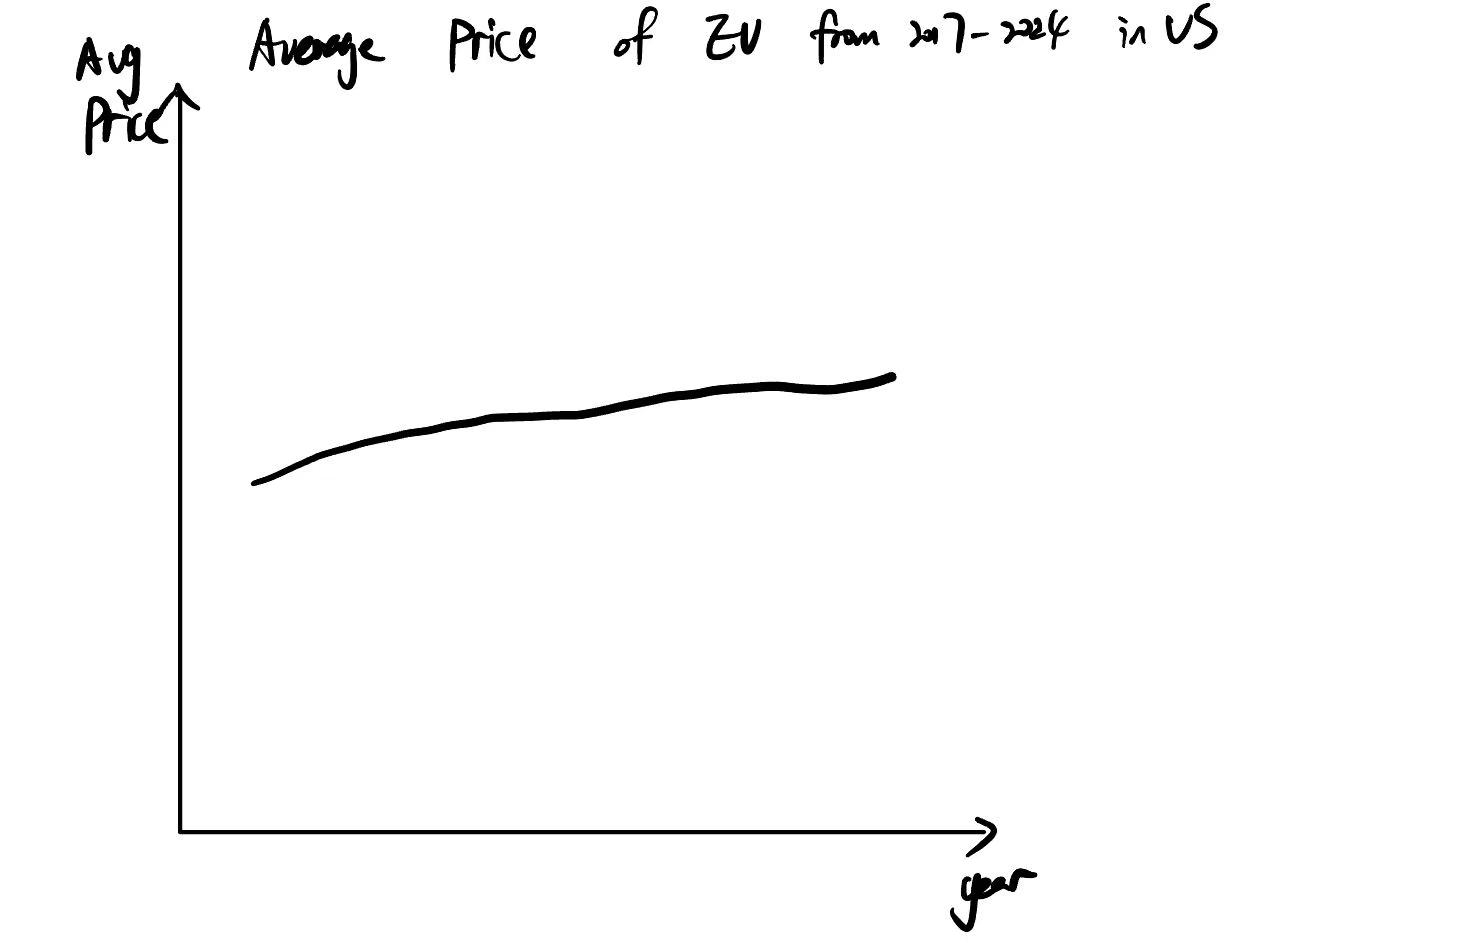 Average Price of EV from 2017-2024 in US
Avg
Price
year